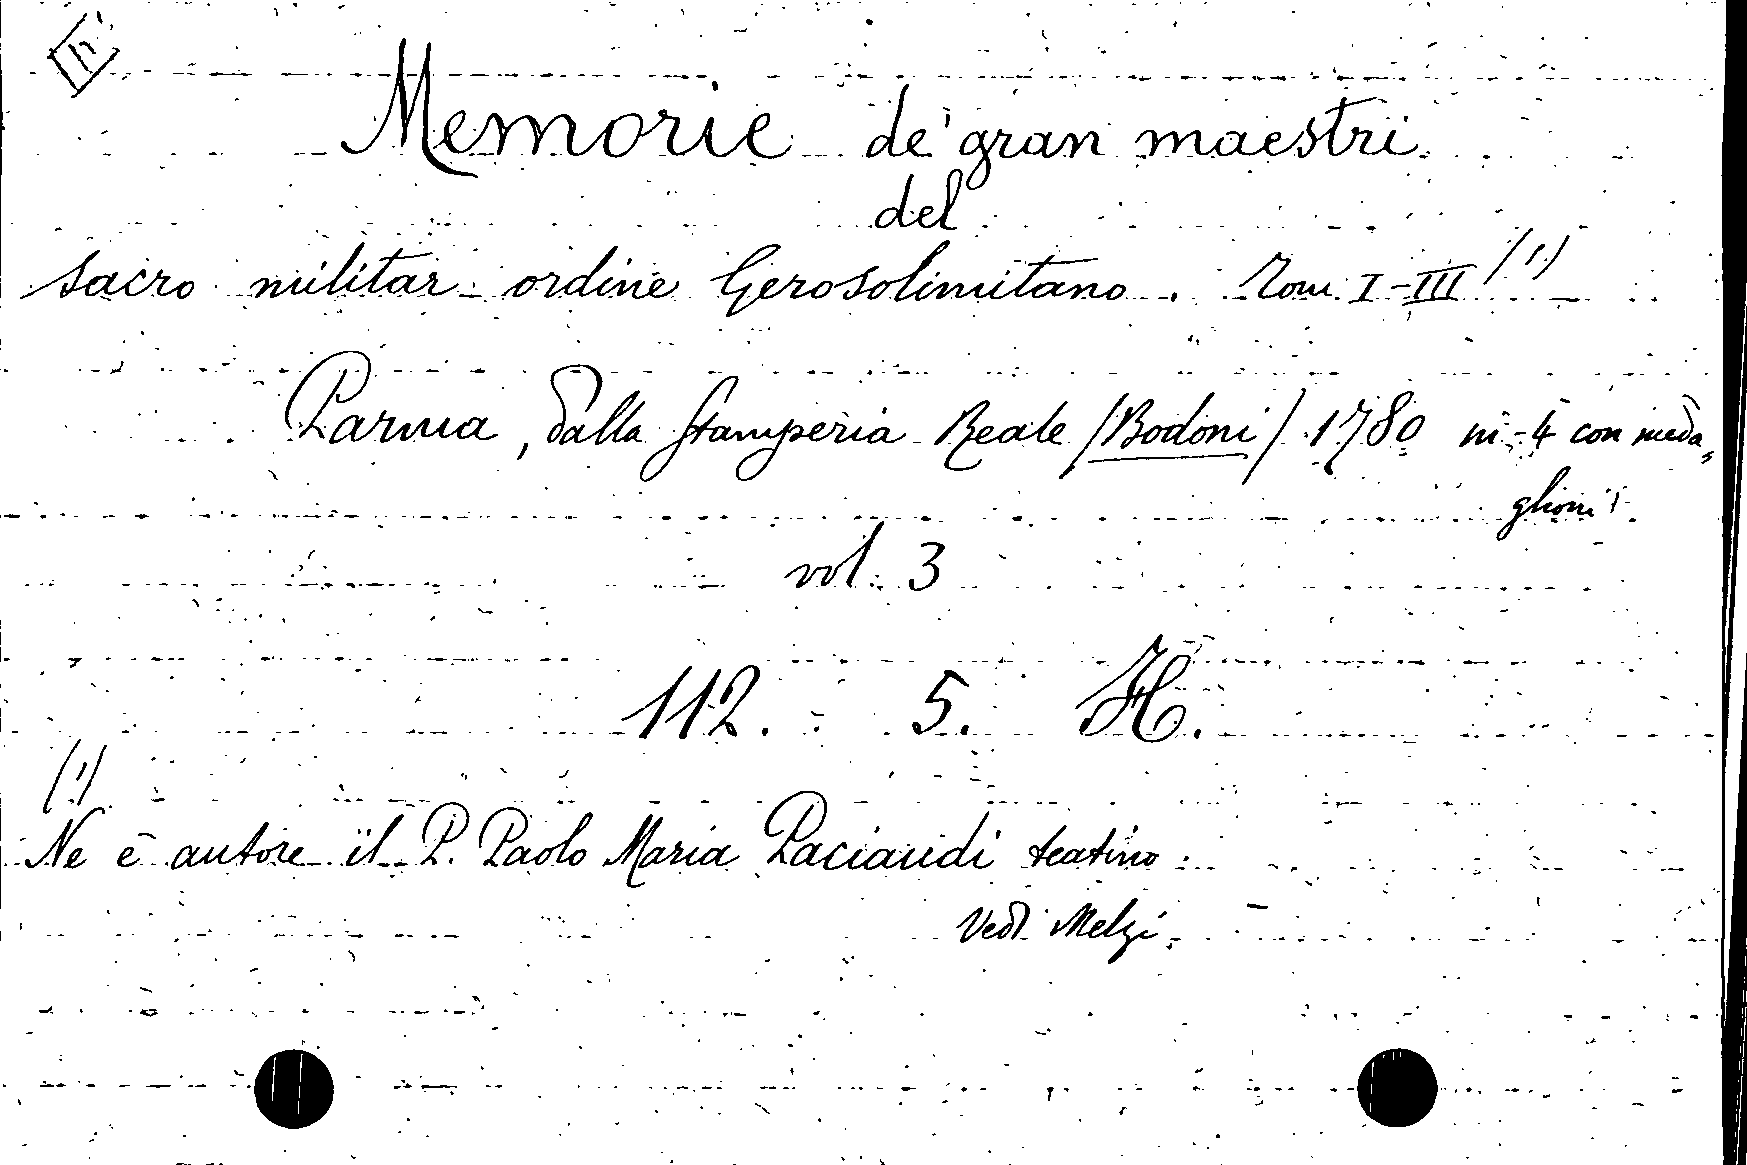 Memorie de' gran maestri
del
sacro militar ordine Gerosolimitano. Tom. I-III (1)
Parma, dalla Stamperia Reale (Bodoni) 1780 in-4 con meda,,
glioni.
vol. 3
112. 5. H.
(1)
Ne è autore il P. Paolo Maria Paciaudi teatino.
Vedi Melzi.